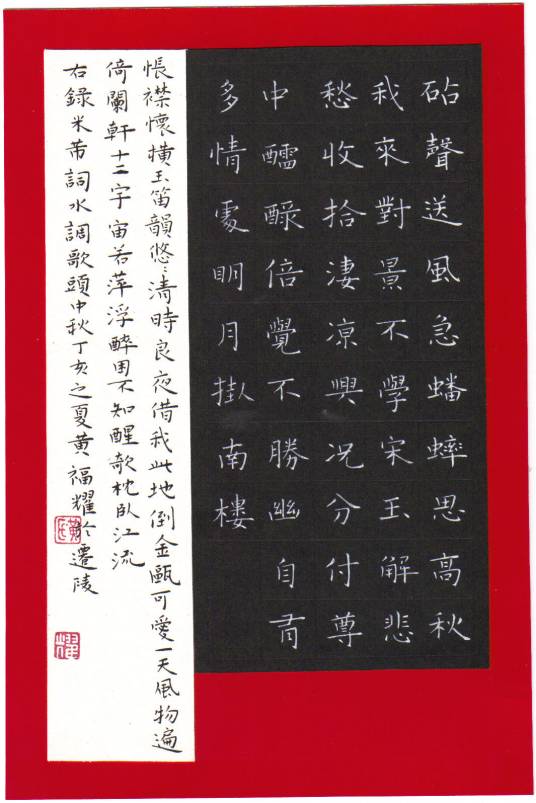 砧聲送風急蟠蟀思高秋
我來對景不學宋玉解悲
愁收拾淒涼興況分付尊
中醽醁倍覺不勝幽自有
多情處明月掛南樓
悵襟懷橫玉笛韻悠〻清時良夜借我此地倒金甌可愛一天風物遍
倚闌軒十二字宙若萍浮醉困不知醒欹枕臥江流
右錄米芾詞水調歌頭中秋丁亥之夏黃福耀於遷陵